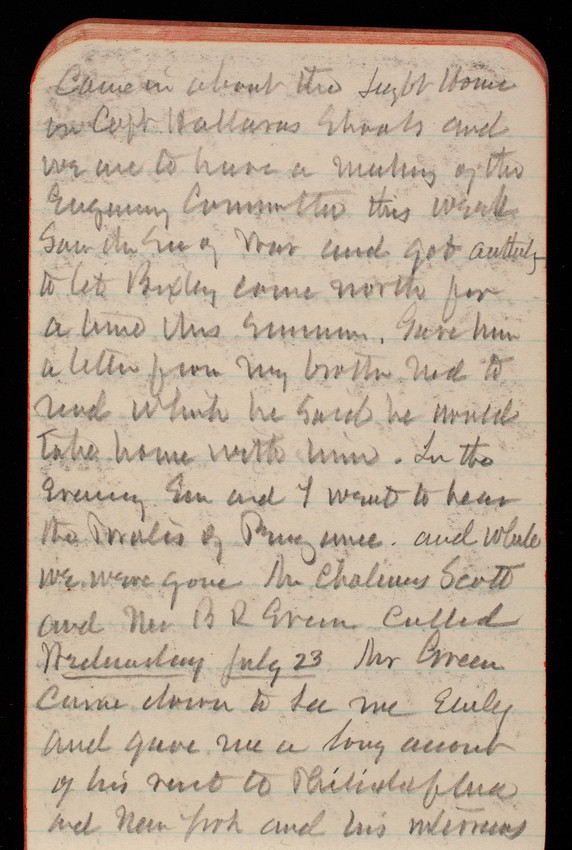 Came in about the Light House
on Cape Hatteras Shoals and
we are to have a meeting of the
Engineering Committee this week
Saw the Sec of War and got authority
to let Bixby come north for
a time this Summer. Gave him
a letter from my brother Ned to
read which he said he would
take home with him. In the
Evening Em and I went to hear
the Pirates of Penzance. and while
we were gone Mr Chalmers Scott
and Mr B R Green called
Wednesday July 23 Mr Green
came down to see me Early
and gave me a long account
of his visit to Philidelphia
and New York and his interviews